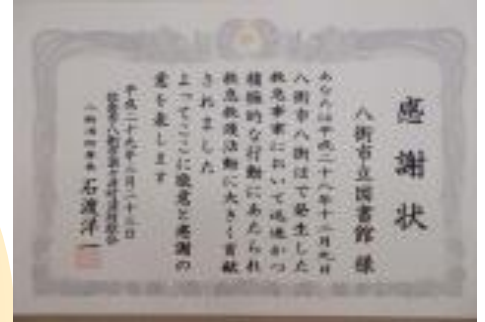 感謝状
八街市立図書館 様
あなたは平成二十八年十二月九日
八街市八街ほで発生した
救急事案において迅速かつ
積極的な行動にあたられ
救急救護活動に大きく貢献
されました
よってここに敬意と感謝の
意を表します
平成二十九年三月二十三日
石渡洋一